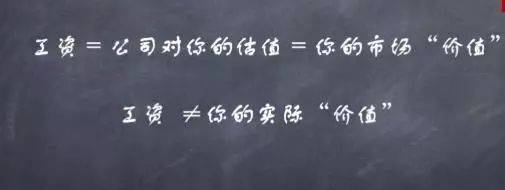 工资=公司对你的估值=你的市场“价值”
工资 ≠你的实际“价值”